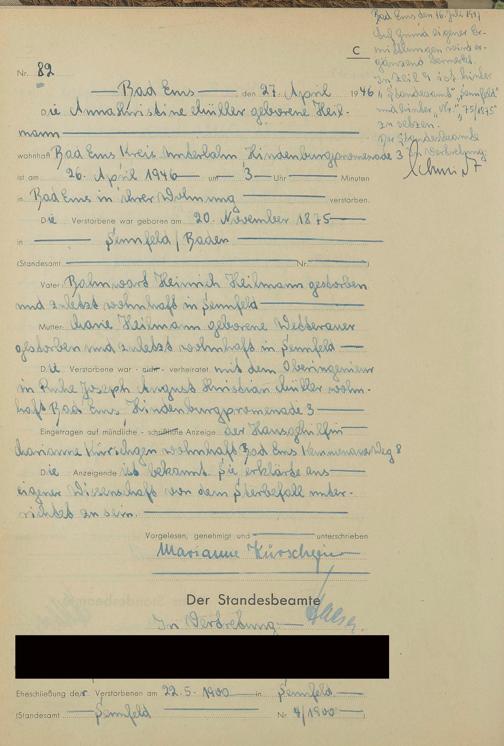 Bad Ems den 16. Juli 1947
Auf Grund eigener Er-
mittlungen wird er-
gänzend bemerkt.
In Zeile 9 ist hinter
„Standesamt“ „Sennfeld“
und hinter „Nr.“ „75/1875“
zu setzen.
Der Standesbeamte
In Vertretung
Schmidt
C
Nr. 82
Bad Ems den 27. April 1946
Die Anna Kristine Müller geborene Heil-
mann
wohnhaft Bad Ems Kreis Unterlahn Hindenburgpromenade 3
ist am 26. April 1946 um 3 Uhr Minuten
in Bad Ems in ihrer Wohnung verstorben.
Die Verstorbene war geboren am 20. November 1875
in Sennfeld / Baden
(Standesamt Nr. )
Vater: Heinrich Heilmann gestorben
und zuletzt wohnhaft in Sennfeld
Mutter: Heilmann geborene Wetterauer
gestorben und zuletzt wohnhaft in Sennfeld
Die Verstorbene war - nicht - verheiratet mit dem Oberingenieur
in Ruhe Joseph August Christian Müller wohn-
haft Bad Ems Hindenburgpromenade 3
Eingetragen auf mündliche - schriftliche Anzeige der Hausgehilfin
Marianne Kürschgen wohnhaft Bad Ems Kemmenauerweg 8
Die Anzeigende ist bekannt Sie erklärte aus
eigener Wissenschaft von dem Sterbefall unter-
richtet zu sein.
Vorgelesen, genehmigt und unterschrieben
Marianne Kürschgen
Der Standesbeamte
In Vertretung
Eheschließung der Verstorbenen am 22.5.1900 in Sennfeld
(Standesamt Sennfeld Nr. 4/1900)